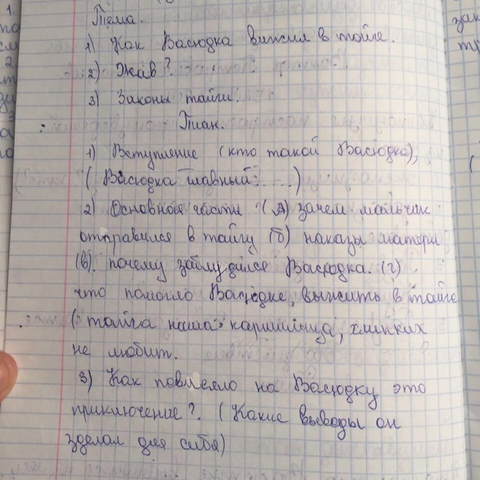 Тема.
1) Как Васюдка выжил в тойге.
2) Жив?
3) Законы тайги.
План.
1) Вступление (кто такой Васюдка),
(Васюдка главный ...)
2) Основной части (А) зачем мальчик
отправился в тайгу (б) наказы матери
(в). почему заблудился Васюдка. (г)
что помогло Васюдке, выжить в тайге
(тайга наша кормилица, хлипких
не любит.
3) Как повлеяло на Васюдку это
приключение?. (Какие выводы он
зделал для себя)